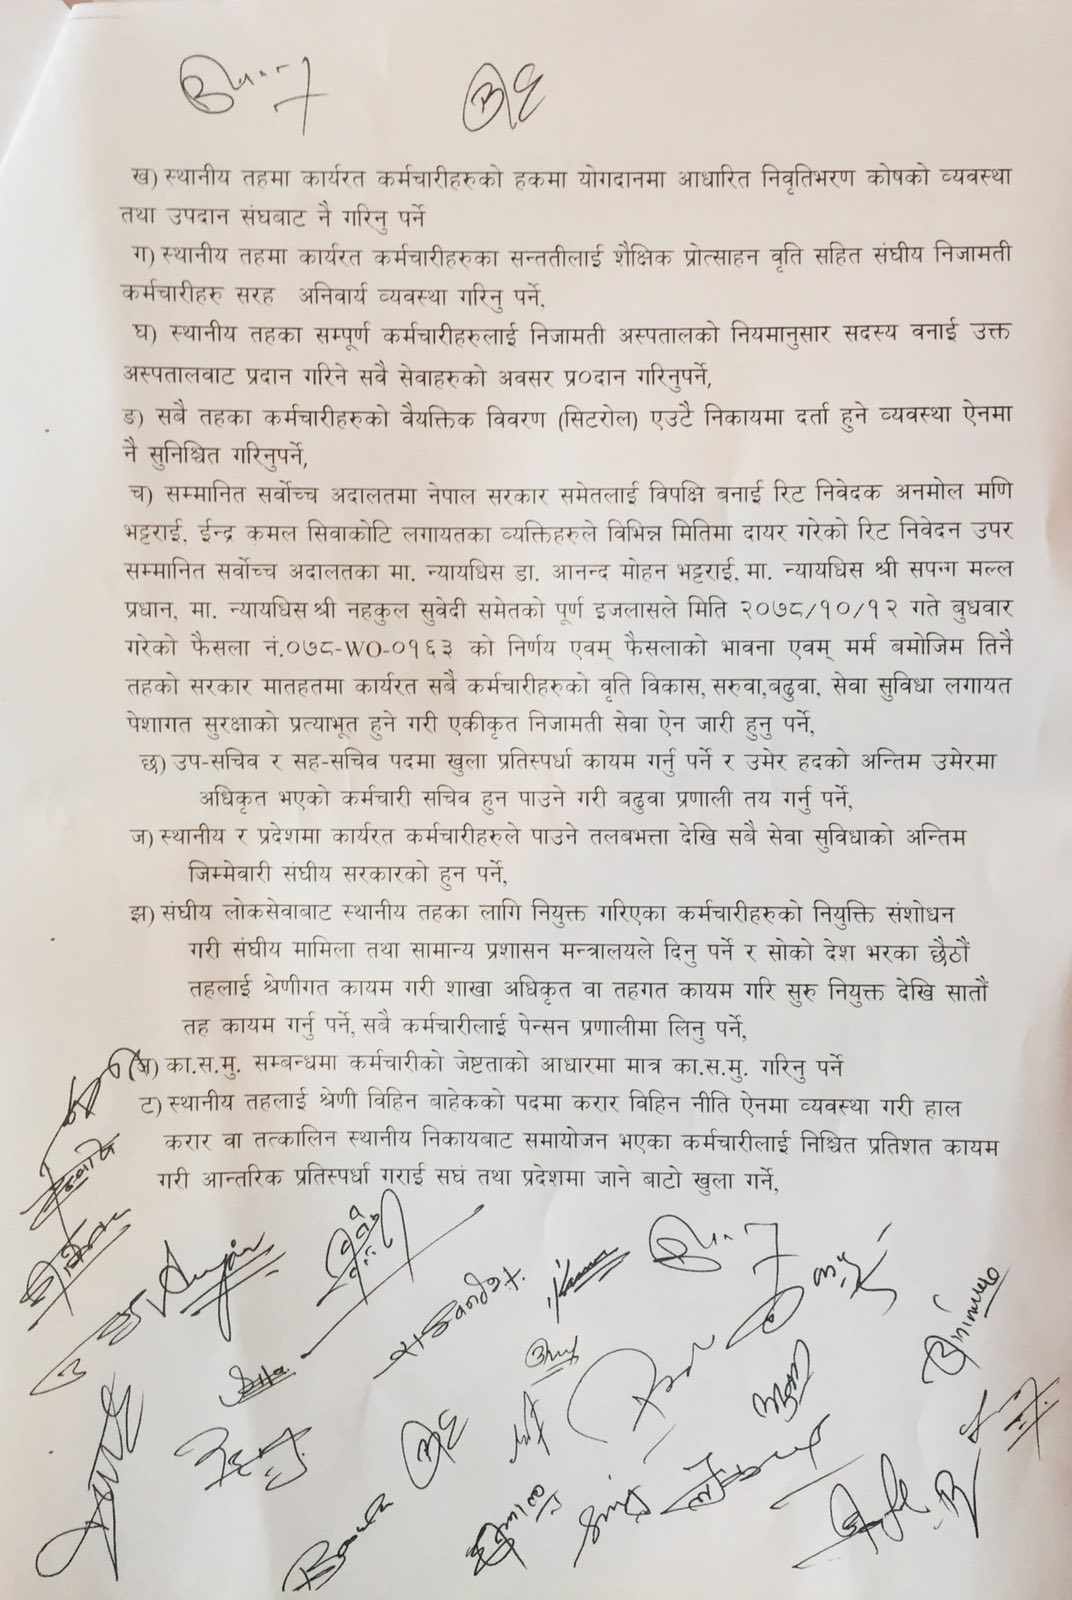 ख) स्थानीय तहमा कार्यरत कर्मचारीहरुको हकमा योगदानमा आधारित निवृतिभरण कोषको व्यवस्था
तथा उपदान संघबाट नै गरिनु पर्ने
ग) स्थानीय तहमा कार्यरत कर्मचारीहरुका सन्ततीलाई शैक्षिक प्रोत्साहन वृति सहित संघीय निजामती
कर्मचारीहरु सरह अनिवार्य व्यवस्था गरिनु पर्ने.
घ) स्थानीय तहका सम्पूर्ण कर्मचारीहरुलाई निजामती अस्पतालको नियमानुसार सदस्य वनाई उक्त
अस्पतालवाट प्रदान गरिने सवै सेवाहरुको अवसर प्र०दान गरिनुपर्ने,
ड) सबै तहका कर्मचारीहरुको वैयक्तिक विवरण (सिटरोल) एउटै निकायमा दर्ता हुने व्यवस्था ऐनमा
नै सुनिश्चित गरिनुपर्ने,
च) सम्मानित सर्वोच्च अदालतमा नेपाल सरकार समेतलाई विपक्षि बनाई रिट निवेदक अनमोल मणि
भट्टराई, ईन्द्र कमल सिवाकोटि लगायतका व्यक्तिहरुले विभिन्न मितिमा दायर गरेको रिट निवेदन उपर
सम्मानित सर्वोच्च अदालतका मा. न्यायधिस डा. आनन्द मोहन भट्टराई, मा. न्यायधिस श्री सपन्ग मल्ल
प्रधान, मा. न्यायधिस श्री नहकुल सुवेदी समेतको पूर्ण इजलासले मिति २०७८/१०/१२ गते बुधवार
गरेको फैसला नं.०७८-WO-०१६३ को निर्णय एवम् फैसलाको भावना एवम् मर्म बमोजिम तिनै
तहको सरकार मातहतमा कार्यरत सबै कर्मचारीहरुको वृति विकास, सरुवा,बढुवा, सेवा सुविधा लगायत
पेशागत सुरक्षाको प्रत्याभूत हुने गरी एकीकृत निजामती सेवा ऐन जारी हुनु पर्ने,
छ) उप-सचिव र सह-सचिव पदमा खुला प्रतिस्पर्धा कायम गर्नु पर्ने र उमेर हदको अन्तिम उमेरमा
अधिकृत भएको कर्मचारी सचिव हुन पाउने गरी बढुवा प्रणाली तय गर्नु पर्ने,
ज) स्थानीय र प्रदेशमा कार्यरत कर्मचारीहरुले पाउने तलबभत्ता देखि सबै सेवा सुविधाको अन्तिम
जिम्मेवारी संघीय सरकारको हुन पर्ने,
झ) संघीय लोकसेवाबाट स्थानीय तहका लागि नियुक्त गरिएका कर्मचारीहरुको नियुक्ति संशोधन
गरी संघीय मामिला तथा सामान्य प्रशासन मन्त्रालयले दिनु पर्ने र सोको देश भरका छैठौं
तहलाई श्रेणीगत कायम गरी शाखा अधिकृत वा तहगत कायम गरि सुरु नियुक्त देखि सातौं
तह कायम गर्नु पर्ने, सबै कर्मचारीलाई पेन्सन प्रणालीमा लिनु पर्ने,
ञ) का.स.मु. सम्बन्धमा कर्मचारीको जेष्टताको आधारमा मात्र का.स.मु. गरिनु पर्ने
ट) स्थानीय तहलाई श्रेणी विहिन बाहेकको पदमा करार विहिन नीति ऐनमा व्यवस्था गरी हाल
करार वा तत्कालिन स्थानीय निकायबाट समायोजन भएका कर्मचारीलाई निश्चित प्रतिशत कायम
गरी आन्तरिक प्रतिस्पर्धा गराई सघं तथा प्रदेशमा जाने बाटो खुला गर्ने,